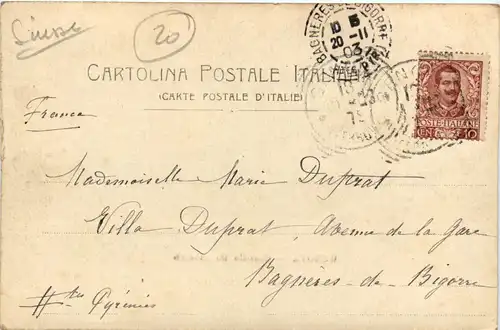 Suisse
20
BAGNERES-DE-BIGORRE
10
20 -11
03
CARTOLINA POSTALE ITALIANA
(CARTE POSTALE D'ITALIE)
POSTE ITALIANE
CENT. 10
France
Mademoiselle Marie Duprat
Villa Duprat, Avenue de la Gare
Bagnères-de-Bigorre
Htes Pyrénées